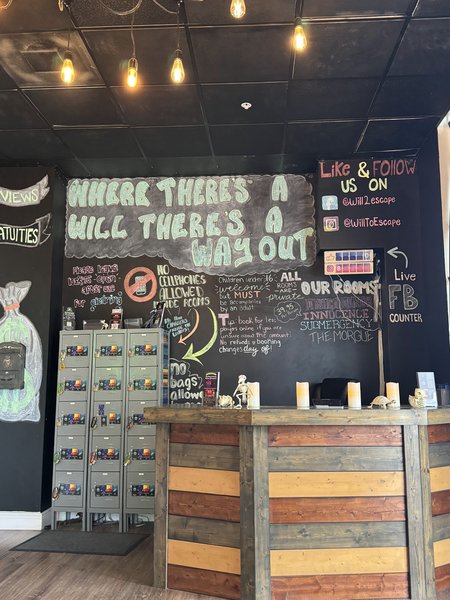 VIEWS
ATUITIES
WHERE THERE'S A
WILL THERE'S A
WAY OUT
LIKE & FOLLOW
US ON
@Will2escape
@WillToEscape
NO
CELLPHONES
ALLOWED
INSIDE ROOMS
NO
BAGS
ALLOWED
Children under 16
welcome
but MUST
be accompanied
by an
adult
ALL
ROOMS
are
private
book for less
players online if you are
unsure about the amount!
No refunds or booking
changes day of!
OUR ROOMS
INNOCENCE
SUBMERGENCY
THE MORGUE
Live
FB
COUNTER